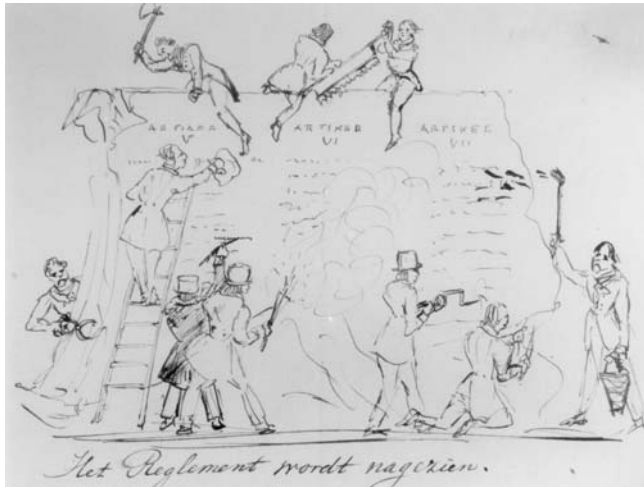 ARTIKEL ARTIKEL ARTIKEL
V VI VII
Het Reglement wordt nagezien.